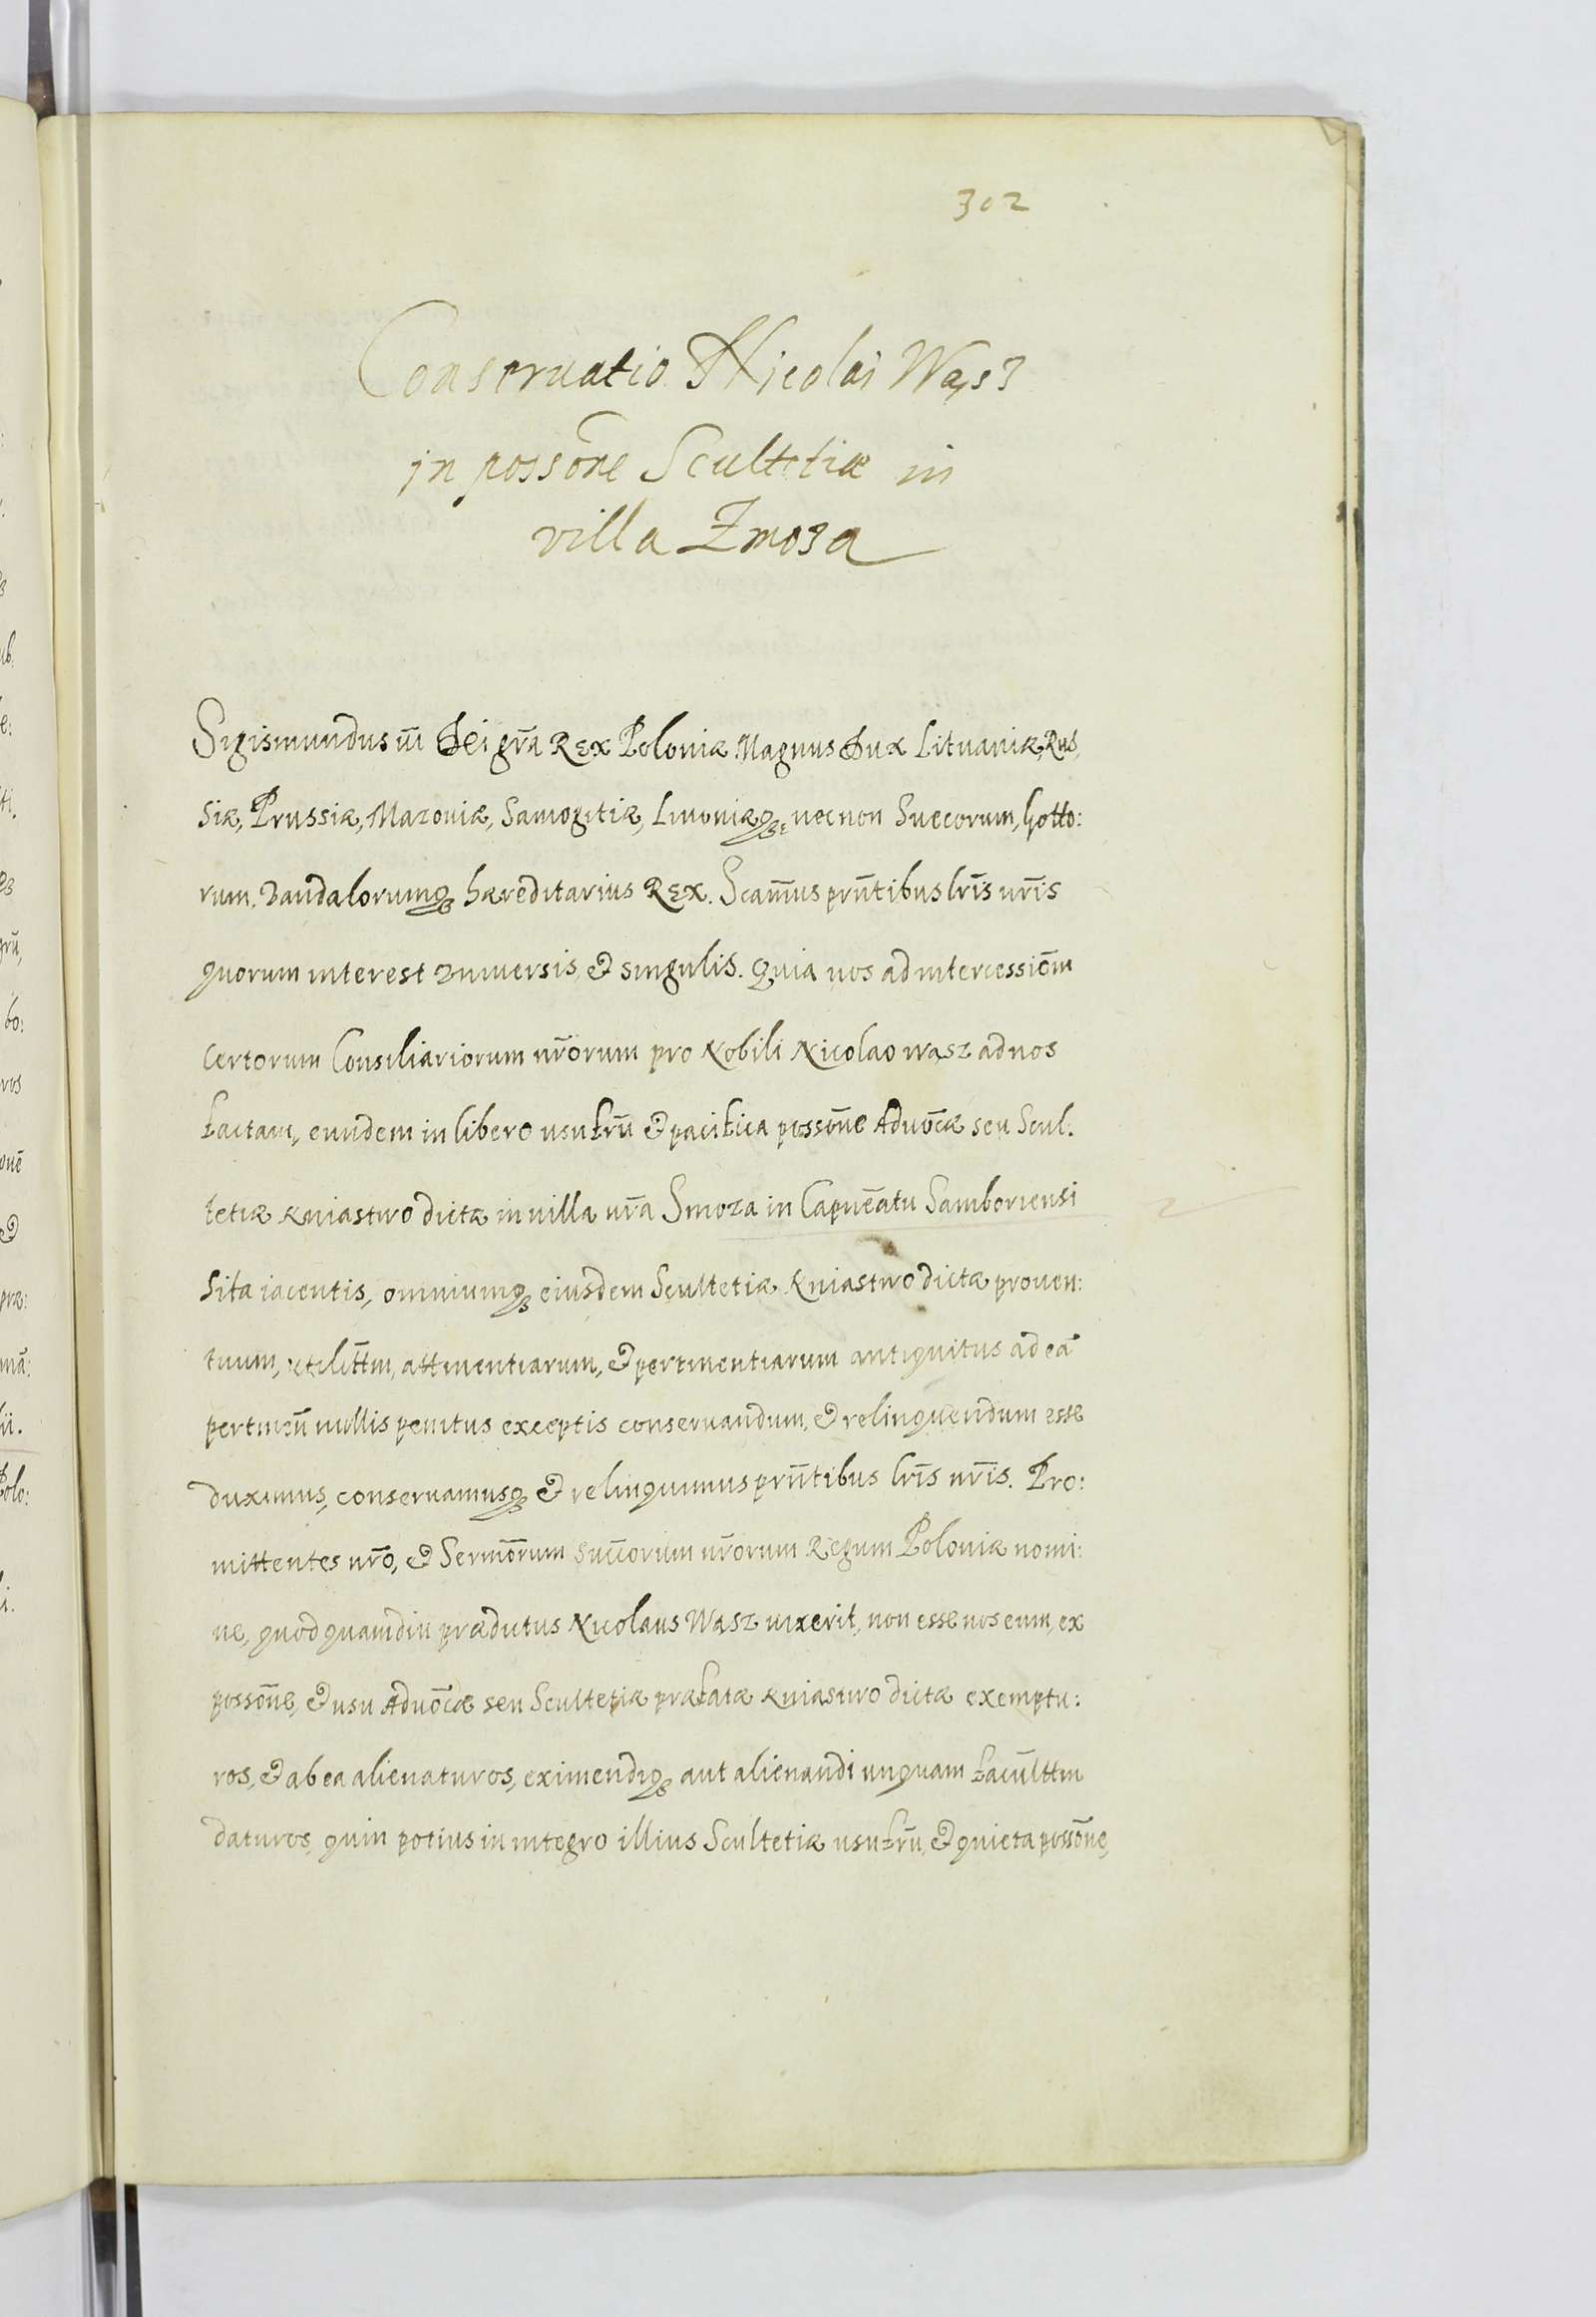 302
Conseruatio Nicolai Wąs3
in possōne Scultetiæ in
villa Zmo3a
Sigismundus iii Dei grā Rex Poloniæ Magnus Dux Lituaniæ, Rus,
siæ, Prussiæ, Mazouiæ, Samogitiæ, Liuoniæq3, necnon Suecorum, Gotto:
rum. Vandalorumq3 hæreditarius Rex. Scamus prn̄tibus lrīs nrīs
quorum interest Vniuersis, & singulis. Quia nos ad intercessiōm
certorum Consiliariorum nrōrum pro Nobili Nicolao Wąsz ad nos
factam, eundem in libero usufrū & pacifica possōne Aduōcæ seu Scul:
tetiæ Kniastwo dictæ in uilla nrā Smoza in Capnēatu Samboriensi
sita iacentis, omniumq3 eiusdem Scultetiæ Kniastwo dictæ prouen:
tuum, vtilittm, attinentiarum, & pertinentiarum antiquitus ad eā
pertineñ nullis penitus exceptis conseruandum, & relinquendum esse
duximus, conseruamusq3 & relinquimus prn̄tibus lrīs nrīs. Pro:
mittentes nrō, & Sermōrum Succorum nrōrum Regum Poloniæ nomi:
ne, quod quamdiu prædictus Nicolaus Wąsz uixerit, non esse nos eum, ex
possōne, & usu Aduōcæ seu Scultetiæ præfatæ Kniastwo dictæ exemptu:
ros, & ab ea alienaturos, eximendiq3 aut alienandi unquam facūlttm
daturos, quin potius in integro illius Scultetiæ usufrū, & quieta possōne,